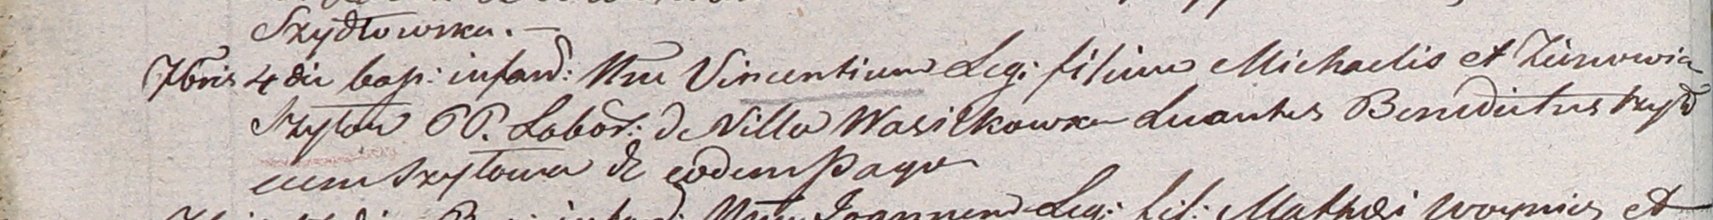 Szydłowska. —
7bris 4 die bap: infan: Nne Vincentium Leg: filium Michaelis et Zienowia
Szytow CC. Labor: de Villa Wasilkowka Levantes Benedictus Szyt
cum Szytowa de eodem Pago
die Bap: infan: Nne Joannem Leg: fil: Mathei Woynicz et